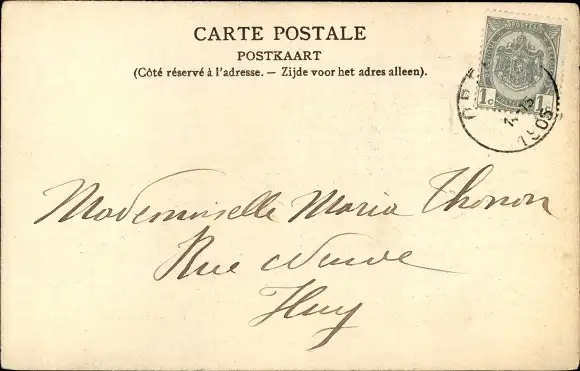 CARTE POSTALE
POSTKAART
(Côté réservé à l'adresse. — Zijde voor het adres alleen).
1c 1c
1905
Mademoiselle Maria Thonon
Rue Neuve
Huy